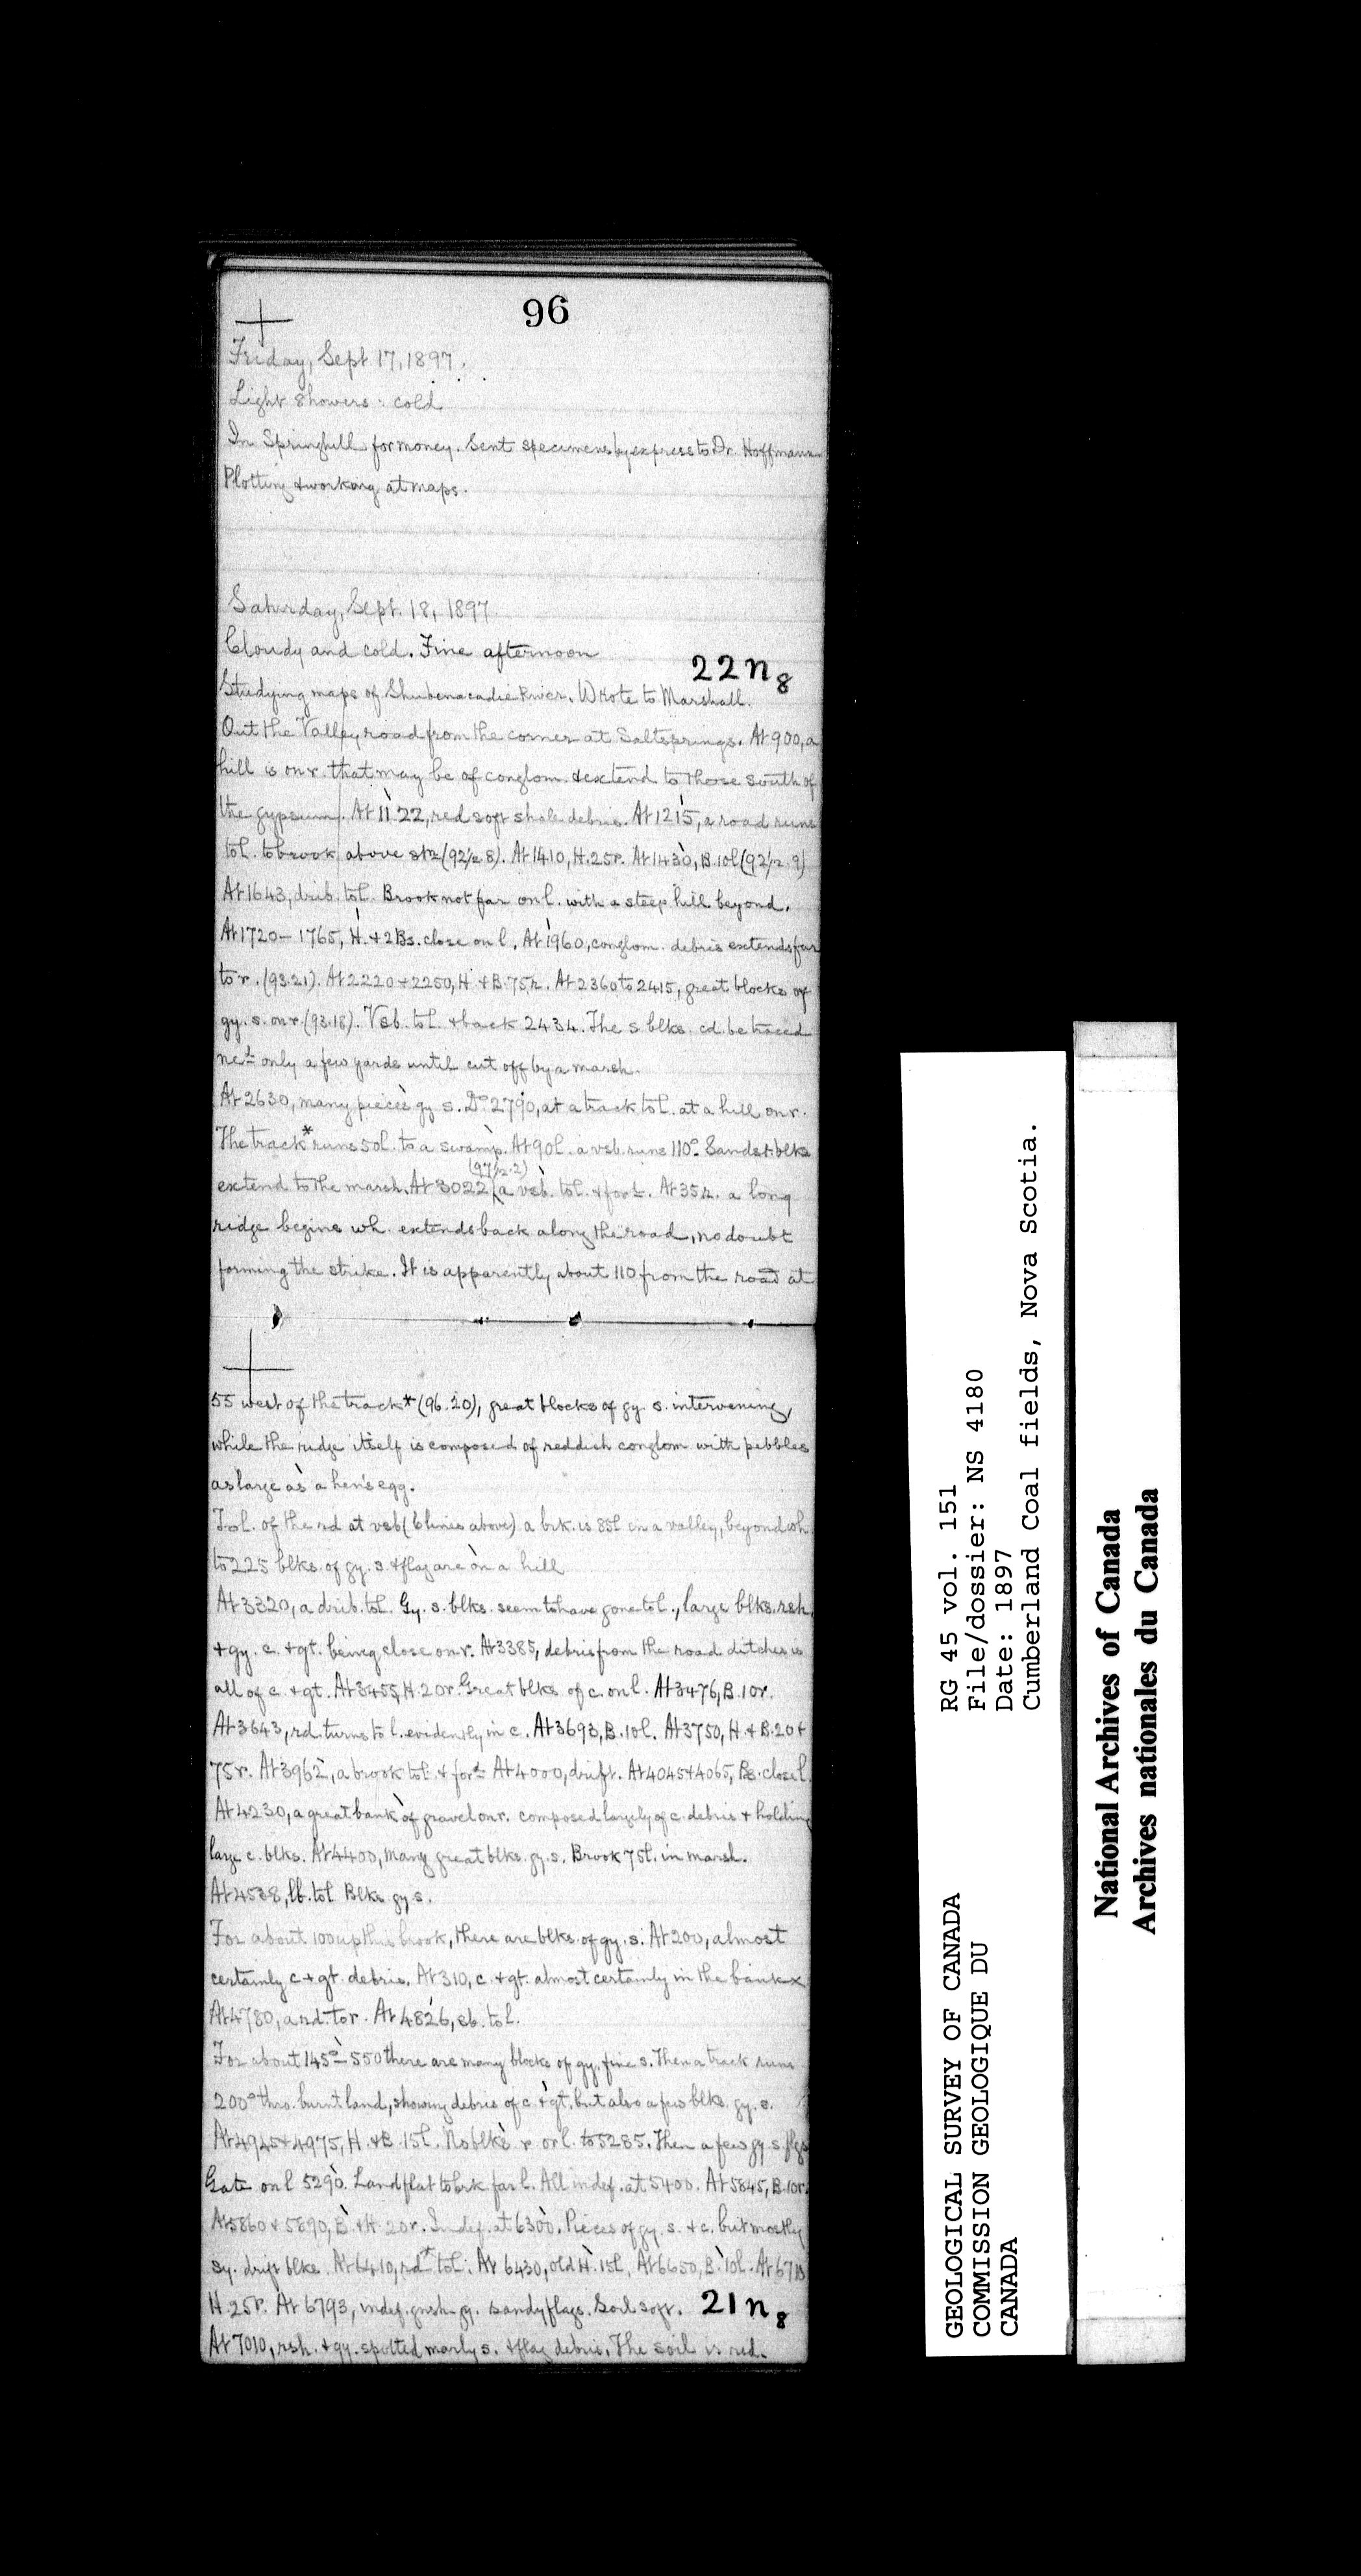 96
Friday, Sept 17, 1897.
Light showers: cold
In Springhill for money. Sent specimens by express to Dr. Hoffmann
Plotting & working at maps.
Saturday, Sept. 18, 1897.
Cloudy and cold. Fine afternoon
22 n 8
Studying maps of Shubenacadie River. Wrote to Marshall.
Out the Valley road from the corner at Saltsprings. At 900, a
hill is on r. that may be of conglom. & extend to those south of
the gypsum. At 1122, red soft shale debris. At 1215, a road runs
to l. to brook above str (92½.8). At 1410, H. 25r. At 1430, B. 10l (92½.9)
At 1643, drib. to l. Brook not far on l. with a steep hill beyond.
At 1720 - 1765, H. & 2Bs. close on l. At 1960, conglom. debris extends far
to r. (93.21). At 2220 & 2250, H. & B. 75r. At 2360 to 2415, great blocks of
gy. s. on r. (93.18). Vsb. to l. & back 2434. The s blks. cd. be traced
only a few yards until cut off by a marsh.
At 2630, many pieces gy s. Do 2790, at a track to l. at a hill on r.
The track* runs 50l. to a swamp. At 90l. a vsb. runs 110°. Sandst. blks
(97½.2)
extend to the marsh. At 3022 (a vsb. to l. & for. At 35r. a long
ridge begins wh. extends back along the road, no doubt
forming the strike. It is apparently about 110 from the road at
55 west of the track* (96.20), great blocks of gy. s. intervening,
while the ridge itself is composed of reddish conglom with pebbles
as large as a hen's egg.
To l. of the rd at vsb (6 lines above) a brk. is 85l in a valley, beyond wh.
to 225 blks. of gy. s. & flag are on a hill
At 3320, a drib. to l. Gy. s. blks. seem to have gone to l., large blks. rsh.
& gy. c. & gt. being close on r. At 3385, debris from the road ditches is
all of c. & gt. At 3455, H. 20r. Great blks of c. on l. At 3476, B. 10r.
At 3643, rd. turns to l. evidently in c. At 3693, B. 10l. At 3750, H. & B. 20 &
75r. At 3962, a brook to l. & for. At 4000, drift. At 4045 & 4065, Bs. close l.
At 4230, a great bank of gravel on r. composed largely of c. debris & holding
large c. blks. At 4400, many great blks. gy. s. Brook 75l. in marsh.
At 4538, lb. to l. Blks gy s.
For about 100 up this brook, there are blks. of gy. s. At 200, almost
certainly c & gt. debris. At 310, c. & gt. almost certainly in the bank x
At 4780, a rd. to r. At 4826, sb. to l.
For about 145° - 550 there are many blocks of gy. fine s. Then a track runs
200° thro. burnt land, showing debris of c. & gt. but also a few blks. gy. s.
At 4945 & 4975, H. & B. 15l. No blks r. or l. to 5285. Then a few gy. s. flgs
Gate on l 5290. Land flat to brk far l. All indef. at 5400. At 5845, B. 10r.
At 5860 & 5890, B. & H. 20r. Indef. at 6300. Pieces of gy. s. & c. but mostly
sy. drift blks. At 6410, rd* to l. At 6430, old H. 15l. At 6650, B. 10l. At
H. 25r. At 6793, indef. gnsh gy. sandy flags. Soil soft. 21 n 8
At 7010, rsh. & gy. spotted marly s. & flag debris. The soil is red.
GEOLOGICAL SURVEY OF CANADA
COMMISSION GEOLOGIQUE DU
CANADA
RG 45 vol. 151
File/dossier: NS 4180
Date: 1897
Cumberland Coal fields, Nova Scotia.
National Archives of Canada
Archives nationales du Canada